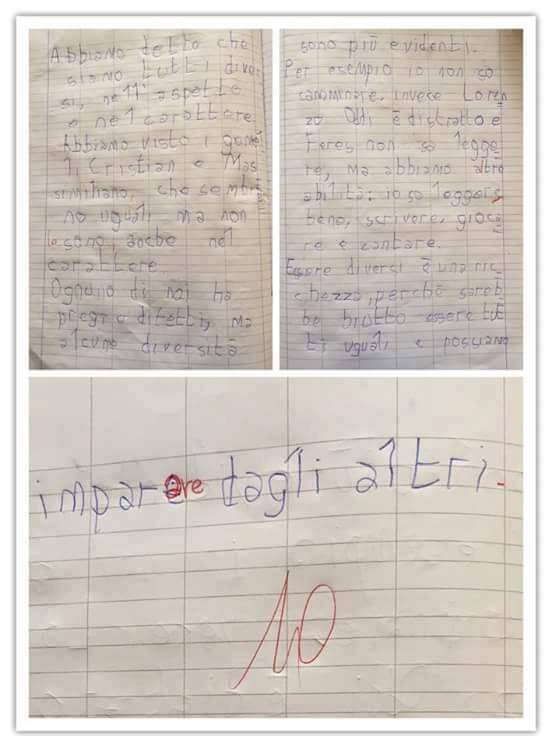 Abbiamo detto che
siamo tutti diver
si, nell'aspetto
e nel carattere.
Abbiamo visto i gemel
li, Cristian e Mas
similiano, che sembra
no uguali, ma non
lo sono, anche nel
carattere
Ognuno di noi ha
pregi e difetti, ma
alcune diversità
sono più evidenti.
Per esempio io non so
camminare, invece Loren
zo Oddi è distratto e
Feres non sa legge
re, ma abbiamo altre
abilità: io so leggere
bene, scrivere, gioca
re e cantare.
Essere diversi è una ric
chezza, perché sareb
be brutto essere tut
ti uguali e possiamo
imparare dagli altri.
10